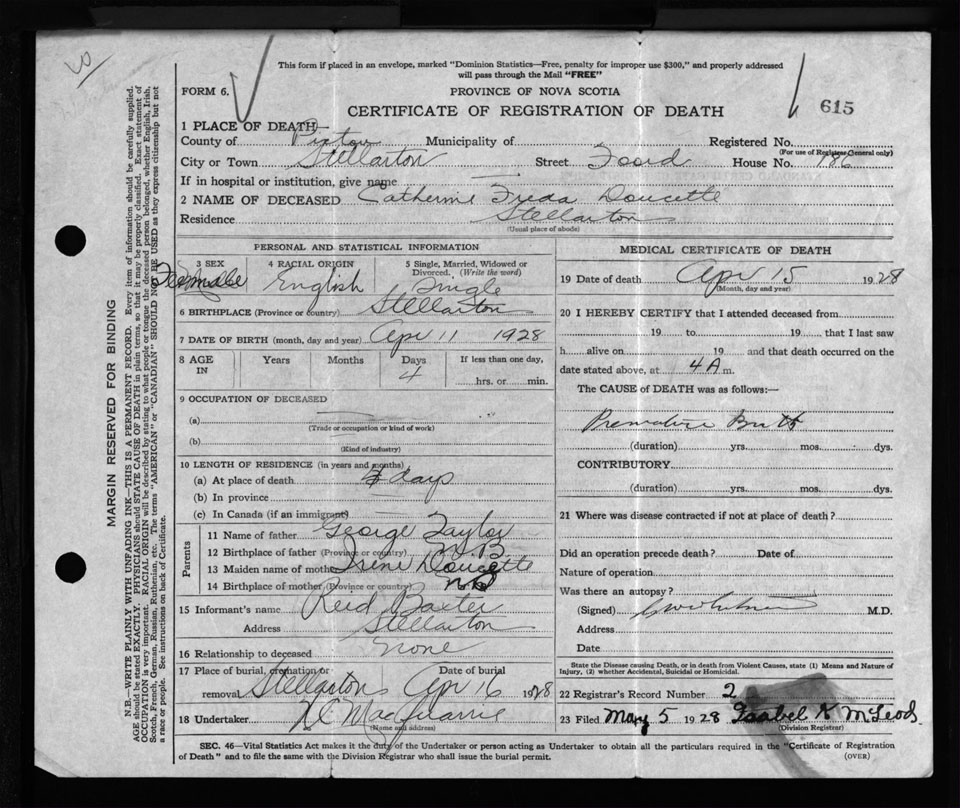 This form if placed in an envelope, marked "Dominion Statistics—Free, penalty for improper use $300," and properly addressed
will pass through the Mail "FREE"
FORM 6.
PROVINCE OF NOVA SCOTIA
615
CERTIFICATE OF REGISTRATION OF DEATH
1 PLACE OF DEATH—
County of Pictou Municipality of Registered No.
(For use of Registrar General only)
City or Town Stellarton Street Foord House No. 186
If in hospital or institution, give name
2 NAME OF DECEASED Catherine Freda Doucette
Residence Stellarton
(Usual place of abode)
PERSONAL AND STATISTICAL INFORMATION
3 SEX 4 RACIAL ORIGIN 5 Single, Married, Widowed or
Divorced. (Write the word)
Female English Single
6 BIRTHPLACE (Province or country) Stellarton
7 DATE OF BIRTH (month, day and year) Apr 11 1928
8 AGE IN Years Months Days If less than one day,
4 hrs. or min.
9 OCCUPATION OF DECEASED
(a)
(Trade or occupation or kind of work)
(b)
(Kind of industry)
10 LENGTH OF RESIDENCE (in years and months)
(a) At place of death 4 days
(b) In province
(c) In Canada (if an immigrant)
Parents
11 Name of father George Taylor
12 Birthplace of father (Province or country) N.B.
13 Maiden name of mother Irene Doucette
14 Birthplace of mother (Province or country) NB
15 Informant's name Reid Baxter
Address Stellarton
16 Relationship to deceased none
17 Place of burial, cremation or Date of burial
removal Stellarton Apr 16 1928
18 Undertaker
(Name and address)
MEDICAL CERTIFICATE OF DEATH
19 Date of death Apr 15 1928
(Month, day and year)
20 I HEREBY CERTIFY that I attended deceased from
19 to 19 that I last saw
h alive on 19 and that death occurred on the
date stated above, at 4 A m.
The CAUSE of DEATH was as follows:—
Premature Birth
(duration) yrs. mos. dys.
CONTRIBUTORY
(duration) yrs. mos. dys.
21 Where was disease contracted if not at place of death?
Did an operation precede death? Date of
Nature of operation
Was there an autopsy?
(Signed) M.D.
Address
Date
State the Disease causing Death, or in death from Violent Causes, state (1) Means and Nature of
Injury, (2) whether Accidental, Suicidal or Homicidal.
22 Registrar's Record Number 2
23 Filed May 5 1928 Isabel K McLeod
(Division Registrar)
SEC. 46—Vital Statistics Act makes it the duty of the Undertaker or person acting as Undertaker to obtain all the particulars required in the "Certificate of Registration
of Death" and to file the same with the Division Registrar who shall issue the burial permit. (OVER)
MARGIN RESERVED FOR BINDING
N.B.—WRITE PLAINLY WITH UNFADING INK—THIS IS A PERMANENT RECORD. Every item of information should be carefully supplied.
AGE should be stated EXACTLY. PHYSICIANS should STATE CAUSE OF DEATH in plain terms, so that it may be properly classified. Exact statement of
OCCUPATION is very important. RACIAL ORIGIN will be described by stating to what people or tongue the deceased person belonged, whether English, Irish,
Scotch, French, German, Russian, Ruthenian, etc. The terms "AMERICAN" or "CANADIAN" SHOULD NOT BE USED as they express citizenship but not
a race or people. See instructions on back of Certificate.